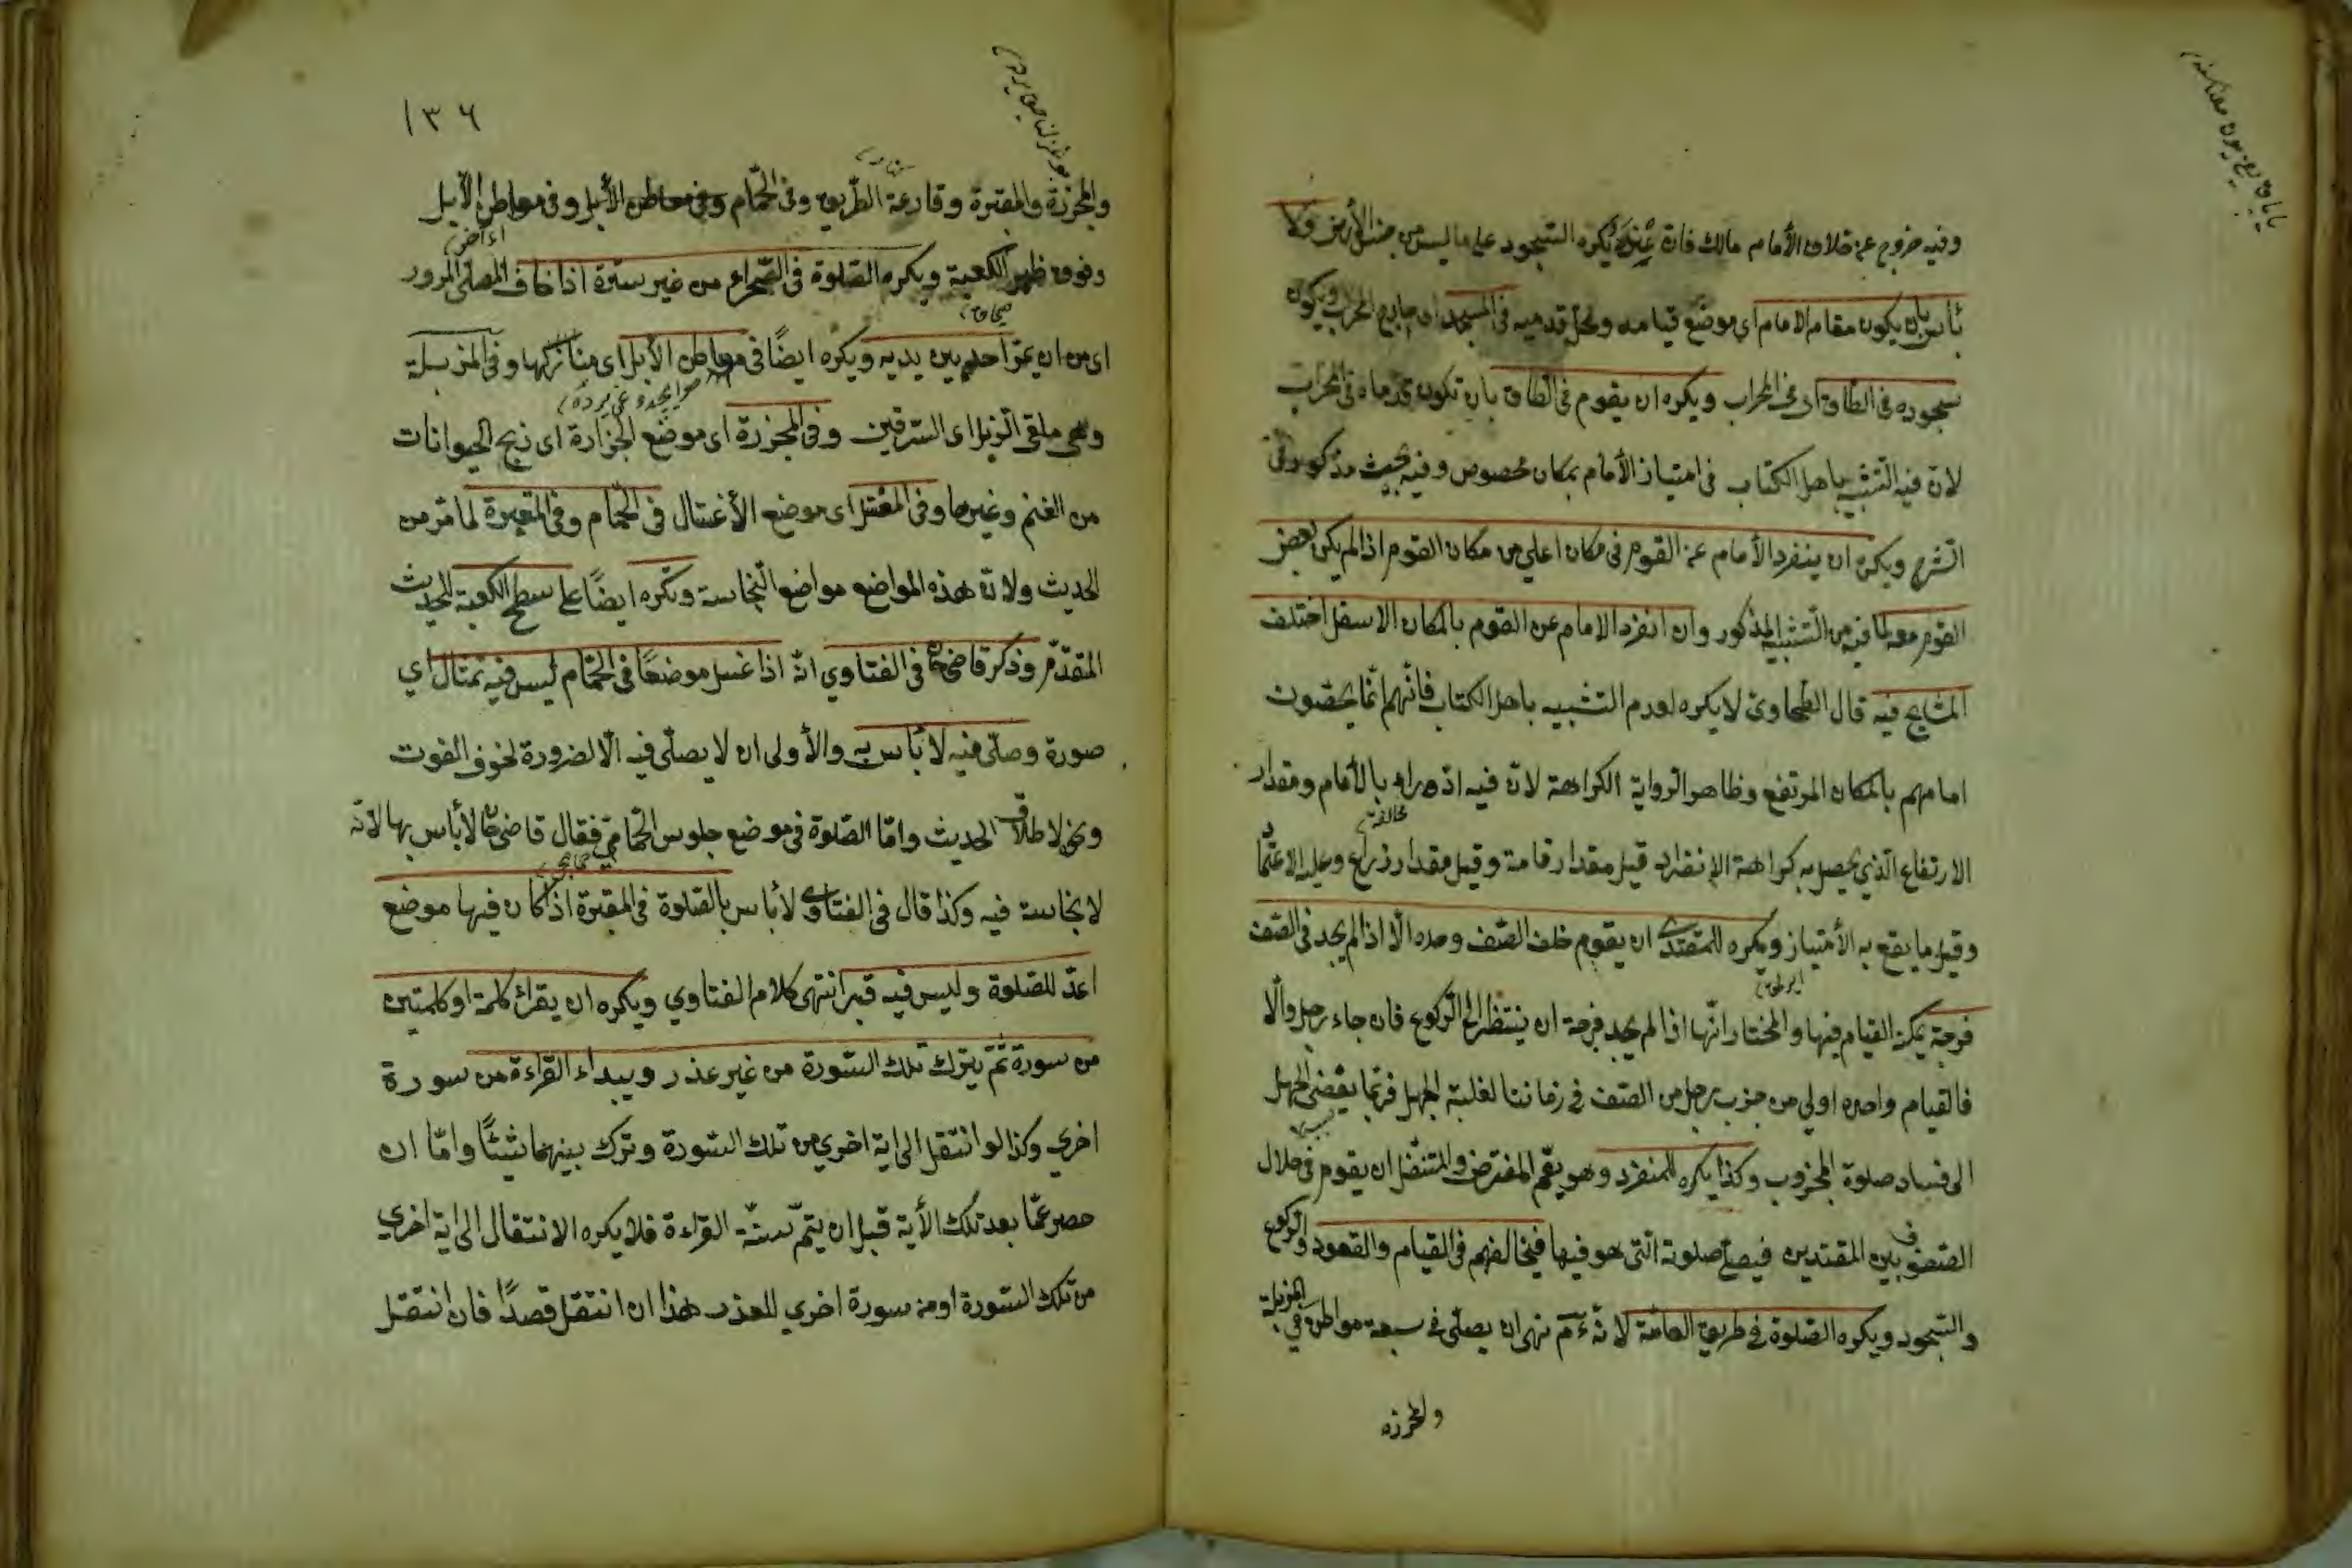 وفيه خروج عن خلاف الأمام مالك فان عنده يكره السجود على ما ليس من جنس الأرض ولا
بأس بان يكون مقام الامام اى موضع قيامه ومحل قدميه فى المسجد اى خارج المحراب ويكون
سجوده فى الطاق اى فى المحراب ويكره ان يقوم فى الطاق بان تكون قدماه فى المحراب
لان فيه التشبيه باهل الكتاب فى امتياز الأمام بمكان مخصوص وفيه بحيث مذكور فى
الشرح ويكره ان ينفرد الأمام عن القوم فى مكان اعلي من مكان القوم اذا لم يكن بعض
القوم معه لما فيه من التشبيه المذكور وان انفرد الامام عن القوم بالمكان الاسفل اختلف
المشايخ فيه قال الطحاوى لا يكره لعدم التشبيه باهل الكتاب فانهم انما يخصون
امامهم بالمكان المرتفع وظاهر الرواية الكراهة لان فيه ازدراء بالأمام ومقدار
مخالفة
الارتفاع الذي يحصل به كراهة الإنفراد قيل مقدار قامة وقيل مقدار ذراع وعليه الاعتماد
وقيل ما يقع به الأمتياز ويكره للمقتدي ان يقوم خلف الصف وحده الا اذا لم يجد فى الصف
فرجة يمكنه القيام فيها والمختار انها اذا لم يجد فرجة ان ينتظر الى الركوع فان جاء رجل والا
فالقيام وحده اولي من جذب رجل من الصف فى زماننا لغلبة الجهل فربما يفضى الجهل
الى فساد صلوة المجذوب وكذا يكره للمنفرد وهو يعم المفترض والمتنفل ان يقوم فى خلال
الصفوف بين المقتدين فيصلي صلوته التى هو فيها فيخالفهم فى القيام والقعود والركوع
والسجود ويكره الصلوة فى طريق العامة لانه ءم نهى ان يصلى فى سبعة مواطن فى المزبلة
والمجزرة
١٣٦
والمجزرة والمقبرة وقارعة الطريق وفى الحمام وفى معاطن الأبل وفى معاطن الأبل
وفوق ظهر الكعبة ويكره الصلوة فى الصحراء من غير سترة اذا خاف المصلى المرور
اى من ان يمر احد بين يديه ويكره ايضًا فى معاطن الأبل اى مناركها وفى المزبلة
وهى ملقى الزبل اى السرقين وفى المجزرة اى موضع الجزارة اى ذبح الحيوانات
من الغنم وغيرها وفى المغتسل اى موضع الأغتسال فى الحمام وفى المقبرة لما مر من
الحديث ولان هذه المواضع مواضع النجاسة ويكره ايضًا على سطح الكعبة للحديث
المقدم وذكر قاضى خان فى الفتاوي انه اذا غسل موضعًا فى الحمام ليس فيه تمثال اي
صورة وصلى فيه لا بأس به والأولى ان لا يصلى فيه الا لضرورة لخوف الفوت
ونحوه لاطلاق الحديث واما الصلوة فى موضع جلوس الحمامي فقال قاضى خان لا بأس بها لانه
لا نجاسة فيه وكذا قال فى الفتاوى لا بأس بالصلوة فى المقبرة اذا كان فيها موضع
اعد للصلوة وليس فيه قبر انتهى كلام الفتاوي ويكره ان يقرأ كلمة او كلمتين
من سورة ثم يترك تلك السورة من غير عذر ويبداء القراءة من سورة
اخري وكذا لو انتقل الى اية اخري من تلك السورة وترك بينهما شيئًا واما ان
حصر عما بعد تلك الأية قبل ان يتم سنة القراءة فلا يكره الانتقال الى اية اخري
من تلك السورة او من سورة اخري للعذر هذا ان انتقل قصدًا فان انتقل